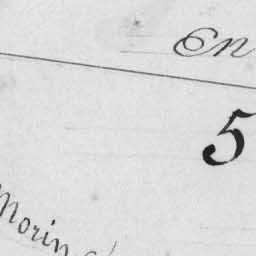 En
5
Morin